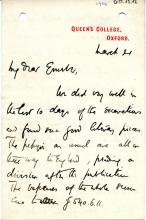 QUEEN'S COLLEGE,
OXFORD.
March 21
My dear
We did very well in
the last 10 days of the excavations
and found some good literary pieces
The papyri as usual are all on
their way to England, pending a
division after the publication
The expenses of the whole season
came to £540.6.11.